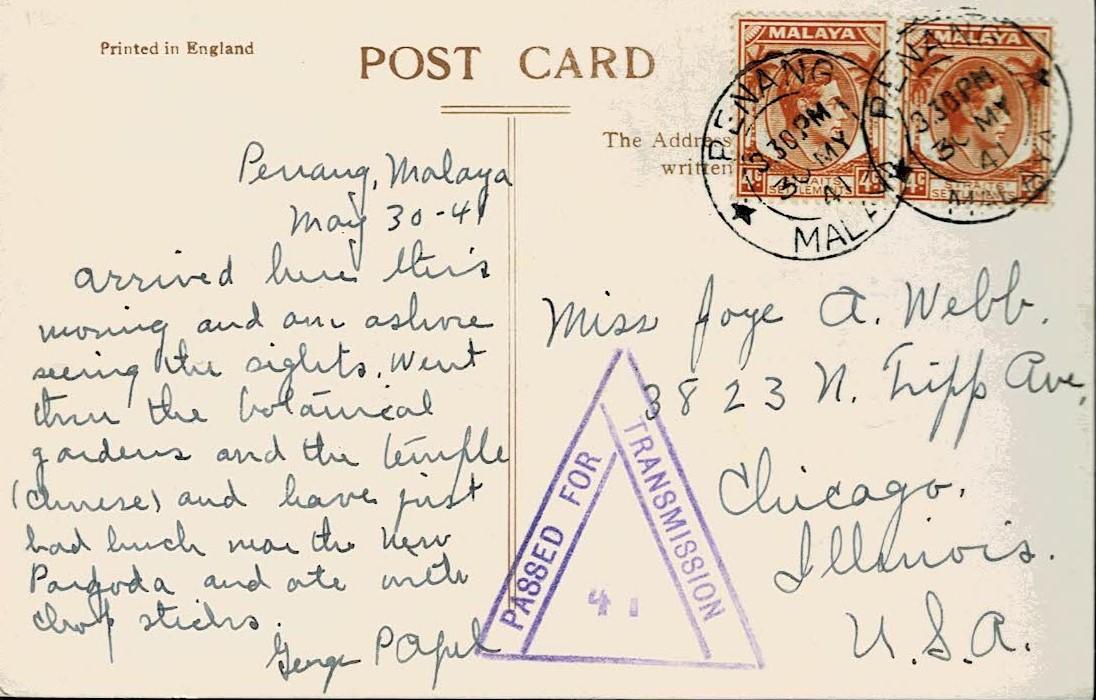 Printed in England
POST CARD
The Address
written
MALAYA
4c 4c
STRAITS
SETTLEMENTS
PENANG
3 30 PM
30 MY
41
MALAYA
MALAYA
4c
STRAITS
PENANG
3 30 PM
30 MY
41
MALAYA
Penang, Malaya
May 30-41
arrived here this
morning and am ashore
seeing the sights. Went
thru the botanical
gardens and the temple
(chinese) and have just
had lunch near the New
Pagoda and ate with
chop sticks.
George
Miss Joye A. Webb.
3823 N. Tripp Ave,
Chicago.
Illinois.
U.S.A.
PASSED FOR
TRANSMISSION
41